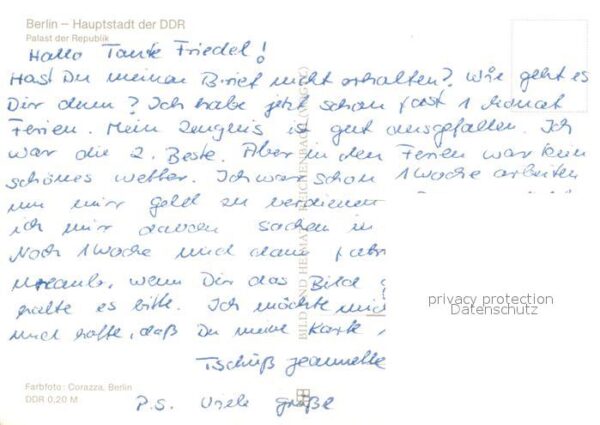 Berlin – Hauptstadt der DDR
Palast der Republik
Hallo Tante Friedel!
Hast Du meinen Brief nicht erhalten? Wie geht es
Dir denn? Ich habe jetzt schon fast 1 Monat
Ferien. Mein Zeugnis ist gut ausgefallen. Ich
war die 2. Beste. Aber in den Ferien war kein
schönes Wetter. Ich war schon 1 Woche arbeiten
um mir Geld zu verdienen
ich mir davon Sachen in
Noch 1 Woche und dann fahr
Urlaub, wenn Dir das Bild
halte es bitte. Ich möchte mich
und hoffe, daß Du meine Karte,
Tschüß Jeannette
P.S. Viele Grüße
BILD UND HEIMAT REICHENBACH (VOGTL)
privacy protection
Datenschutz
Farbfoto: Corazza, Berlin
DDR 0,20 M